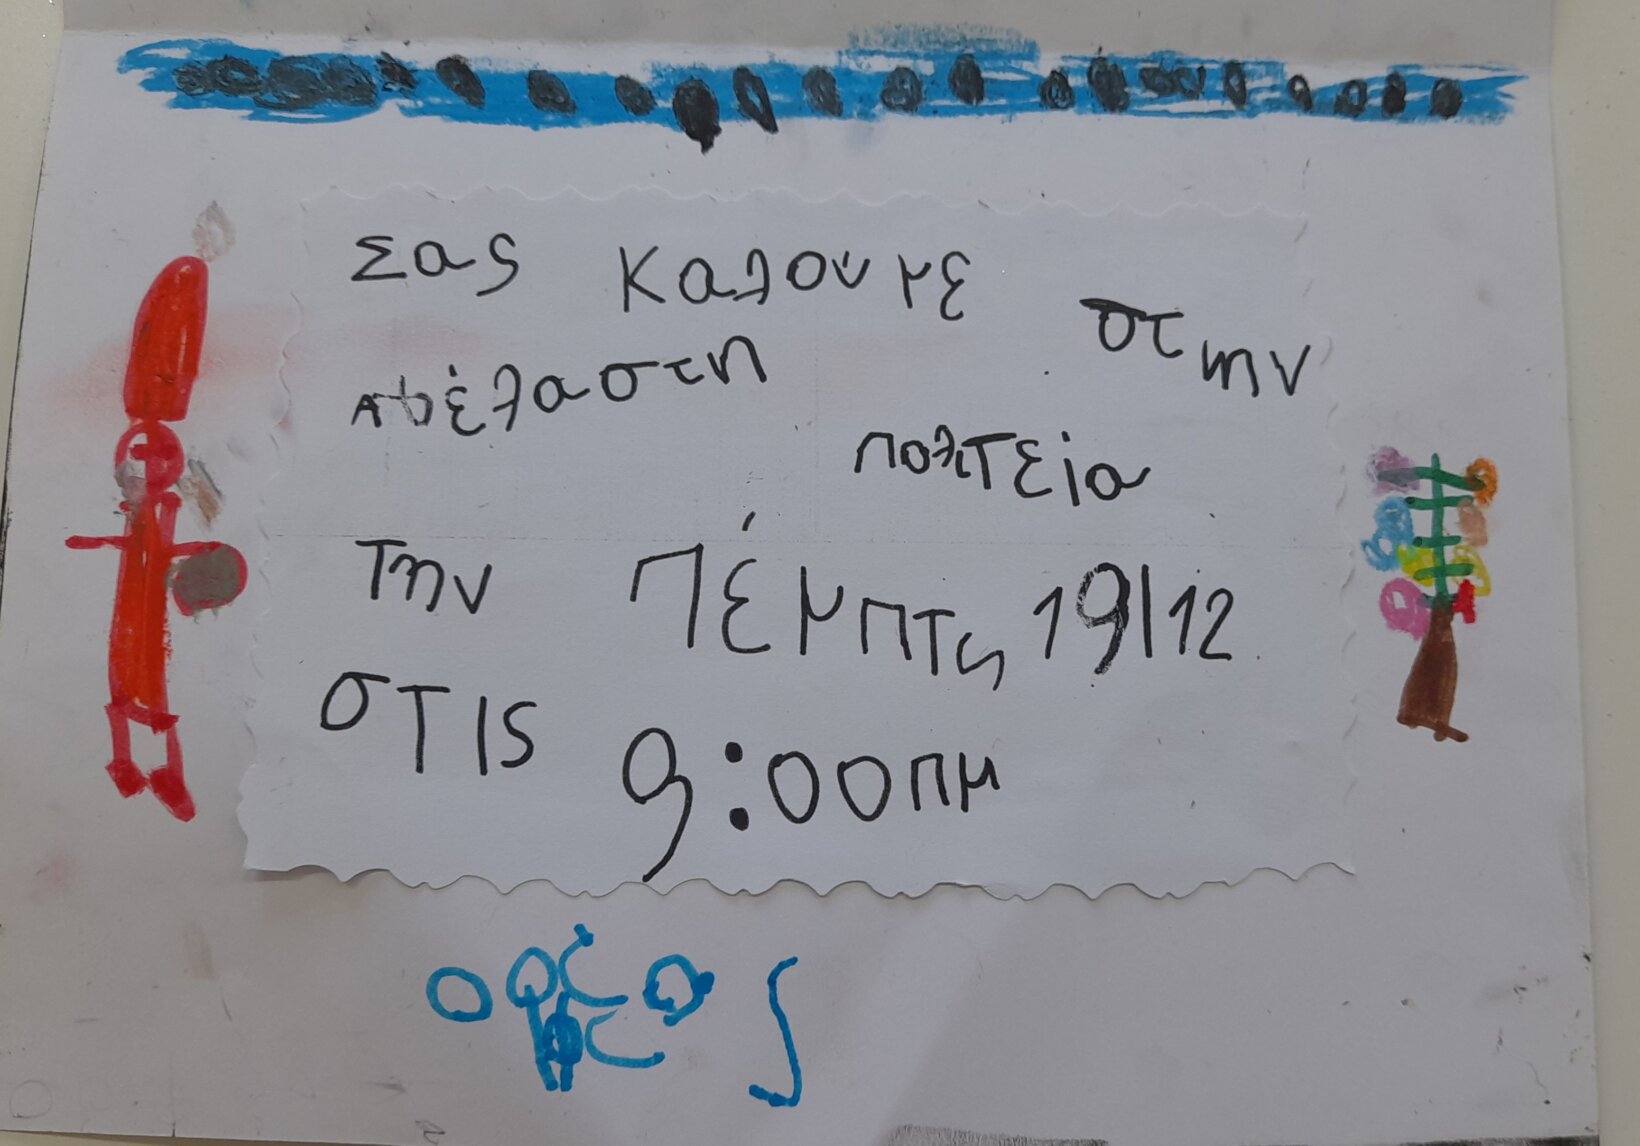 Σας καλούμε στην
αγέλαστη πολιτεία
την Πέμπτη 19/12
στις 9:00πμ